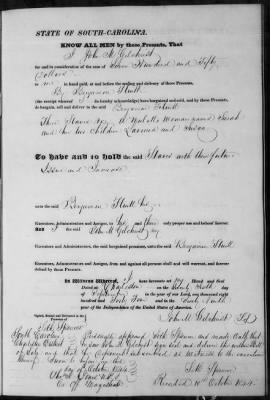 STATE OF SOUTH-CAROLINA.
KNOW ALL MEN by these Presents, That
I John M. Gilchrist
for and in consideration of the sum of Seven Hundred and Fifty
Dollars
to me in hand paid, at and before the sealing and delivery of these Presents,
By Benjamin
(the receipt whereof I do hereby acknowledge) have bargained and sold, and by these Presents,
do bargain, sell and deliver to the said Benjamin
Three Slaves a Mulatto Woman named Sarah
and her two Children and
To have and to hold the said Slaves with their future
Issue and Increase
unto the said Benjamin his
Executors, Administrators and Assigns, to his and their only proper use and behoof forever.
And I the said John M. Gilchrist my
Executors, Administrators and Assigns, the said bargained premises, unto the said Benjamin
Executors, Administrators and Assigns, from and against all persons shall and will warrant, and forever
defend by these Presents.
In Witness Whereof, I have hereunto set my Hand and
Seal
Dated at Charleston on the
day of in the year of our Lord, one thousand eight
hundred and Forty Four and in the Sixty Ninth
year of the Independence of the United States of America.
Signed, Sealed and Delivered in the
Presence of
John M Gilchrist
Spencer
South Carolina
Charleston District
Personally appeared Seth Spencer and made Oath that
he saw John M. Gilchrist sign seal and deliver the within Bill
of
day of October 1844
Seth Spencer
Magistrate
Recorded October 1844